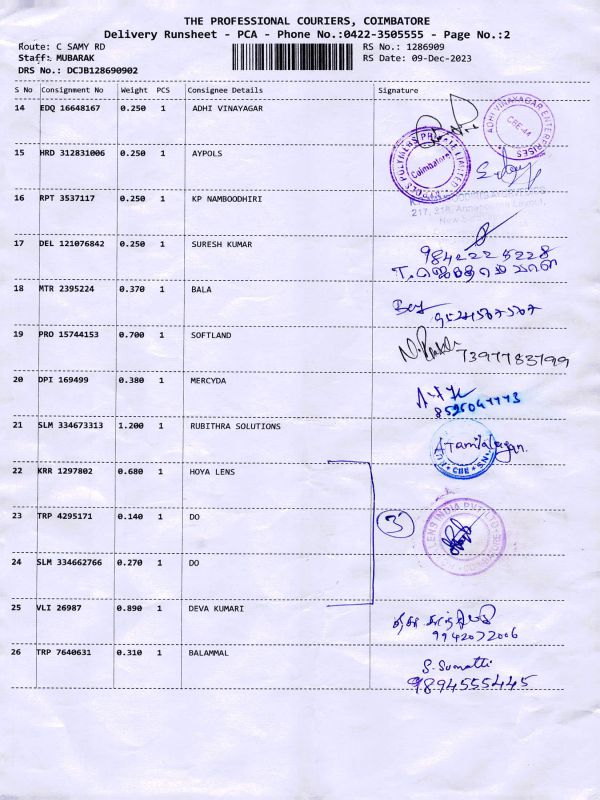 THE PROFESSIONAL COURIERS, COIMBATORE
Delivery Runsheet - PCA - Phone No.:0422-3505555 - Page No.:2
Route: C SAMY RD RS No.: 1286909
Staff: MUBARAK RS Date: 09-Dec-2023
DRS No.: DCJB128690902
S No Consignment No Weight PCS Consignee Details Signature
14 EDQ 16648167 0.250 1 ADHI VINAYAGAR
ADHI VINAYAGAR ENTERPRISES
CBE-44
15 HRD 312831006 0.250 1 AYPOLS
AYPOLS POLYMERS PRIVATE LIMITED
Coimbatore
16 RPT 3537117 0.250 1 KP NAMBOODHIRI
17 DEL 121076842 0.250 1 SURESH KUMAR
9842225228
18 MTR 2395224 0.370 1 BALA
19 PRO 15744153 0.700 1 SOFTLAND
7397783799
20 DPI 169499 0.380 1 MERCYDA
21 SLM 334673313 1.200 1 RUBITHRA SOLUTIONS
A Tamilalagan
CBE
22 KRR 1297802 0.680 1 HOYA LENS
23 TRP 4295171 0.140 1 DO
3
LENS INDIA PVT LTD
COIMBATORE
24 SLM 334662766 0.270 1 DO
25 VLI 26987 0.890 1 DEVA KUMARI
9942072006
26 TRP 7640631 0.310 1 BALAMMAL
S. Sumathi
9894555445